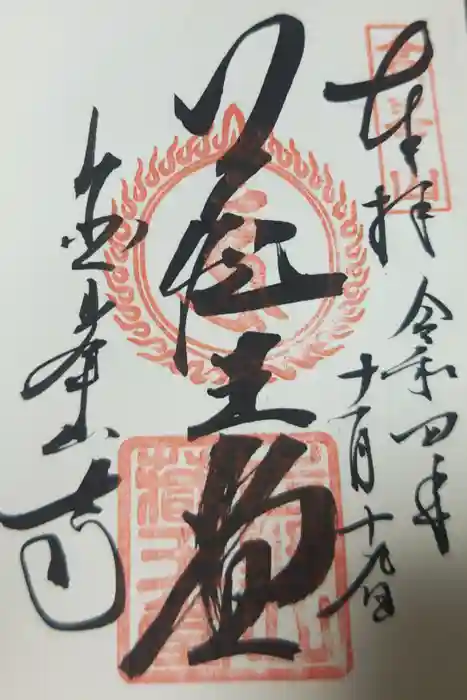 奉拝
令和四年
十一月十九日
蔵王堂
金峯山寺